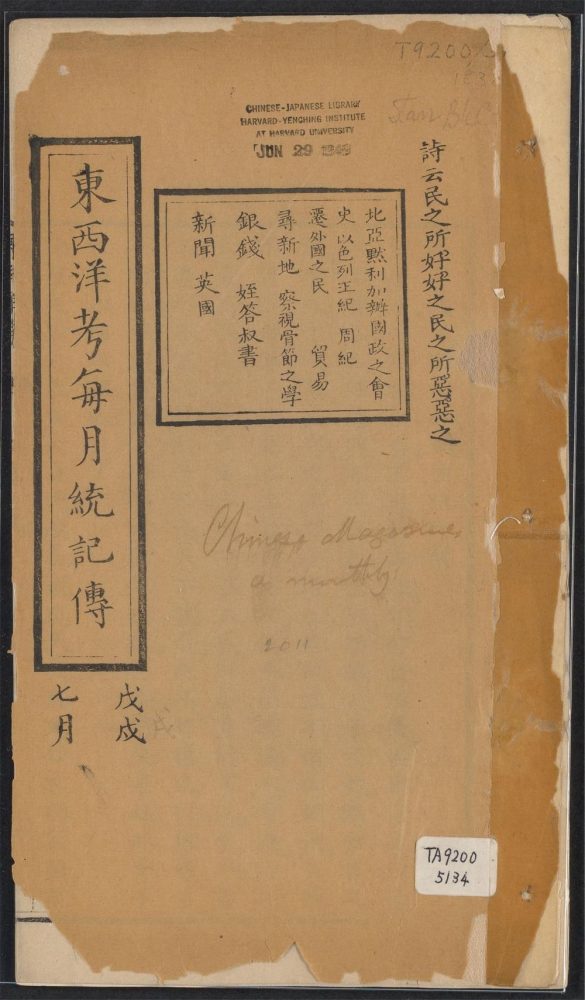 T9200
CHINESE-JAPANESE LIBRARY
HARVARD-YENCHING INSTITUTE
AT HARVARD UNIVERSITY
JUN 29 1949
詩云民之所好好之民之所惡惡之
北亞黙利加辦國政之會
史 以色列王紀 周紀
遷外國之民 貿易
尋新地 察視骨節之學
銀錢 姪答叔書
新聞 英國
東西洋考每月統記傳
戊戌
七月
Chinese Magazine,
a monthly
2011
TA9200
5134